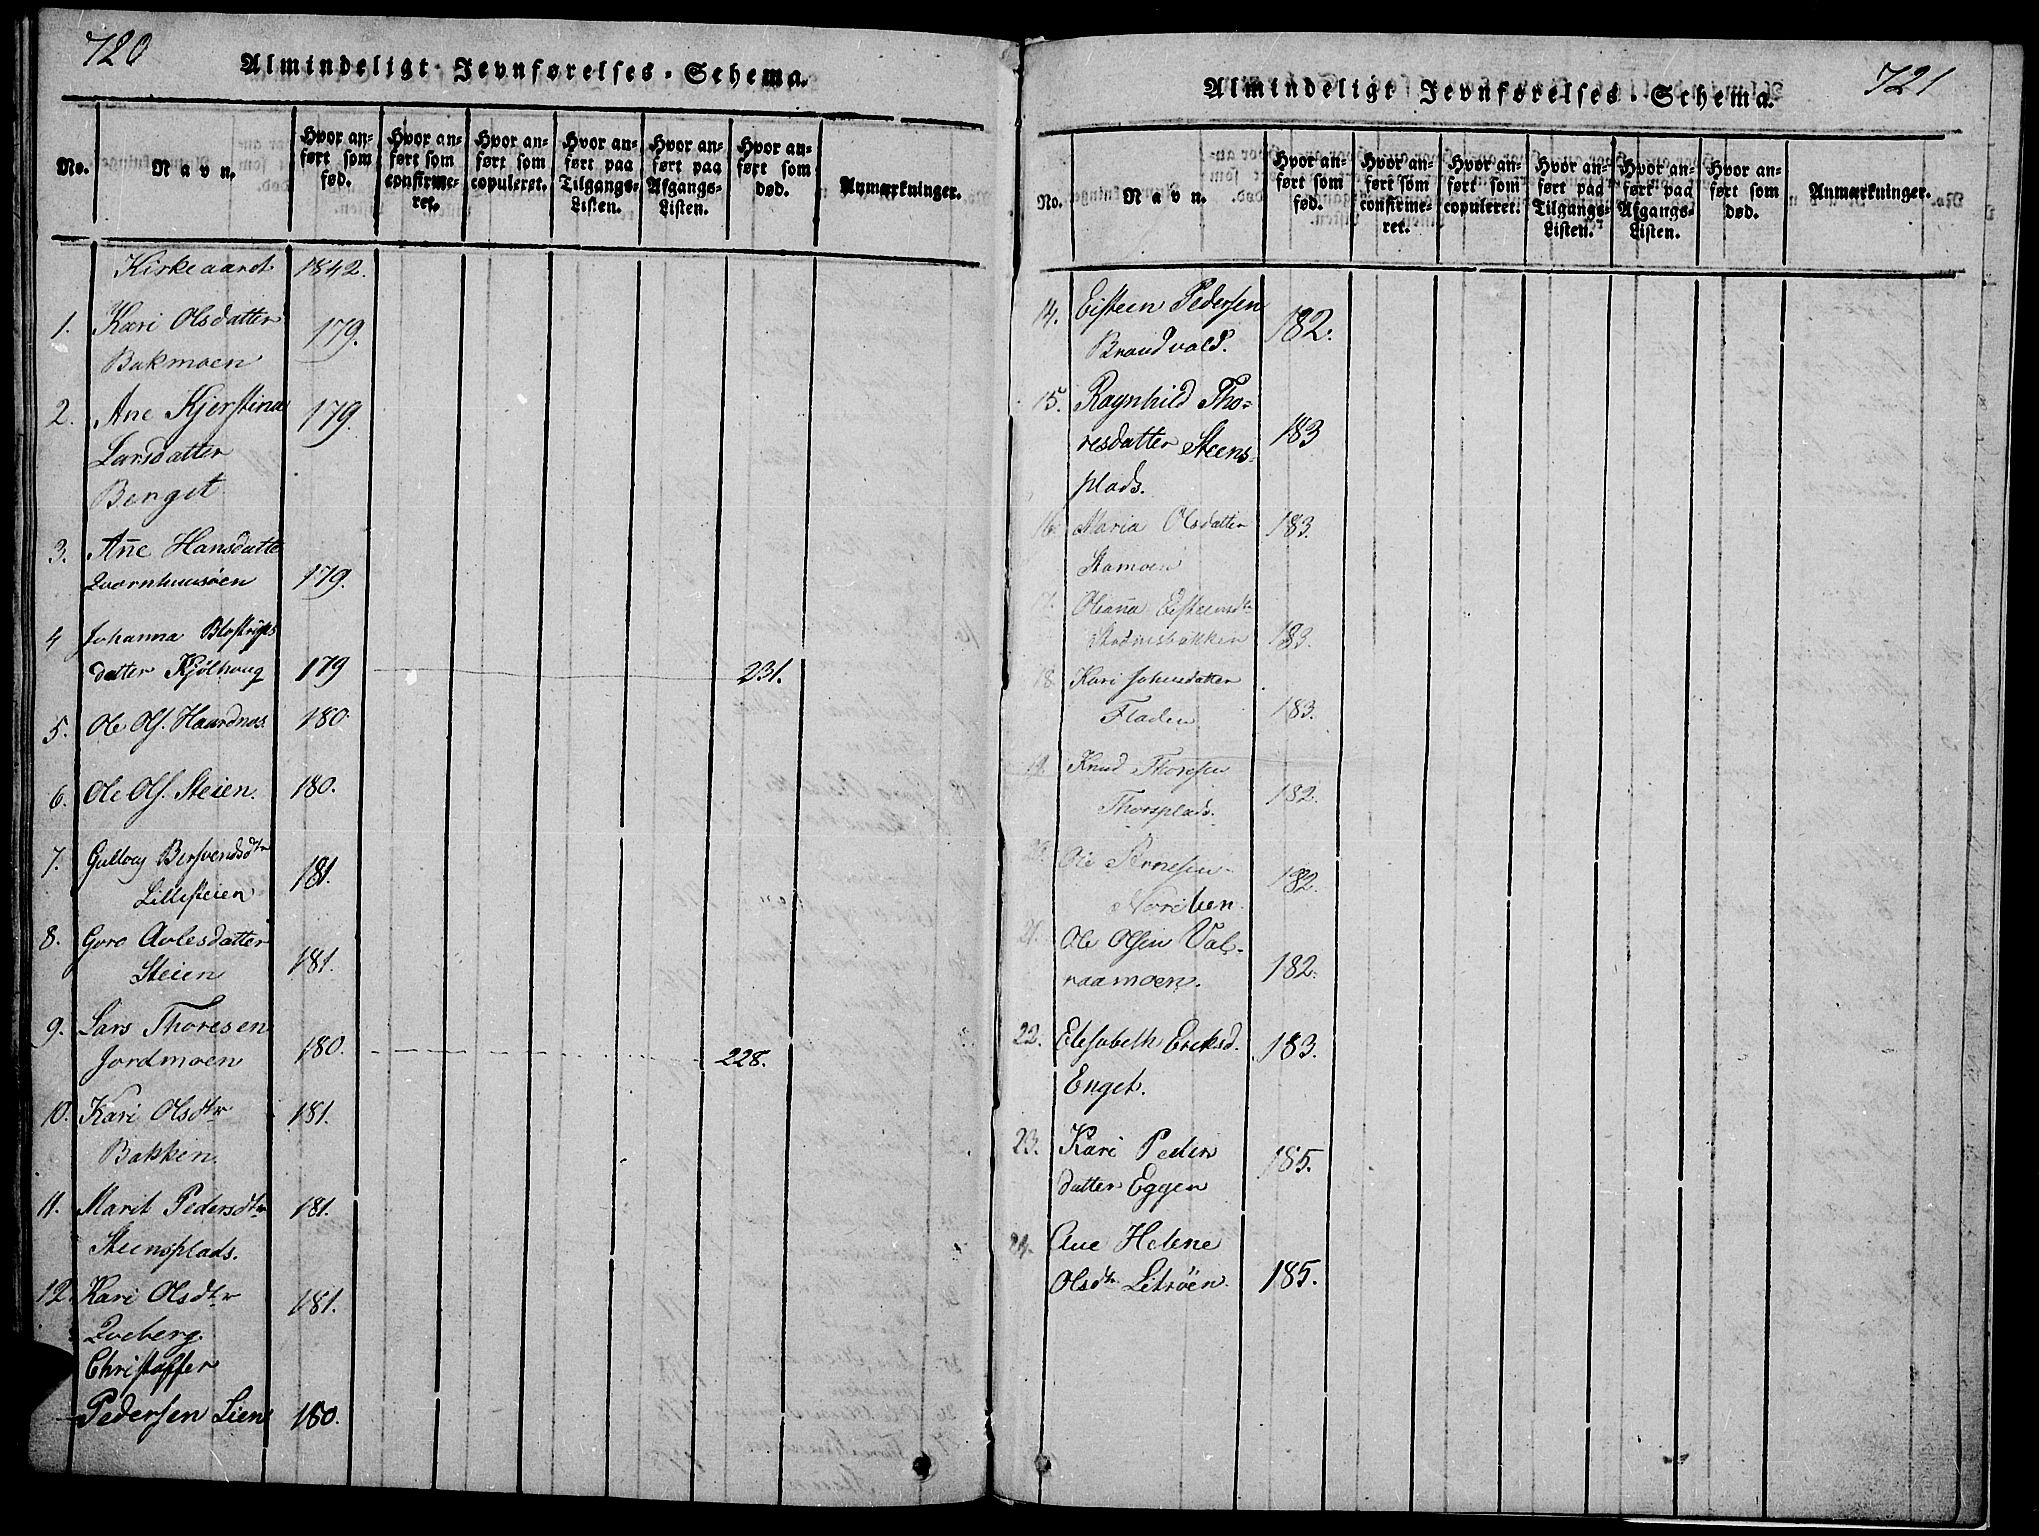 720
Almindeligt Jevnførelses-Schema.
No.
Navn.
Hvor an-
ført som
fød.
Hvor an-
ført som
confirme-
ret.
Hvor an-
ført som
copuleret.
Hvor an-
ført paa
Tilgangs-
Listen.
Hvor an-
ført paa
Afgangs-
Listen.
Hvor an-
ført som
død.
Anmærkninger.
Kirkeaaret 1842.
1. Kari Olsdatter 179.
Bakmoen
2. Ane Kjerstina 179.
Larsdatter
Berget
3. Añe Hansdatte
Qvernhuusøen 179.
4 Johanna
datter Kjölhoug 179 231.
5. Ole Ols. Haardnes 180.
6. Ole Ols. Steien. 180.
7. Gulloug Bersvendsdtr 181.
Lillesteien
8. Goro Avlesdatter
Steien 181.
9. Lars Thoresen
Jordmoen 180. 228.
10. Kari Olsdtr 181.
Bakken.
11. Marit Pedersdtr 181.
Steensplads.
12. Kari Olsdtr 181.
Qveberg.
Christoffer
Pedersen Lien 180.
721
Almindeligt Jevnførelses-Schema.
No.
Navn.
Hvor an-
ført som
fød.
Hvor an-
ført som
confirme-
ret.
Hvor an-
ført som
copuleret.
Hvor an-
ført paa
Tilgangs-
Listen.
Hvor an-
ført paa
Afgangs-
Listen.
Hvor an-
ført som
død.
Anmærkninger.
14. Eisteen Pedersen 182.
Brandvold.
15. Ragnhild Tho-
resdatter Steens- 183
plads.
16. Maria Olsdatter 183.
Stamoen
17. Oleaña Eisteensdtr
183.
18. Kari Johnsdatter
Fladen 183.
19. Knud Thoresen
Thoresplads. 182.
20. Ole Arnesen 182.
21. Ole Olsen Val-
raamoen. 182.
22. Elisabeth Eriksd. 183.
Enget.
23. Kari Peders 185.
datter Eggen
24. Ane Helene
Olsdtr Litröen. 185.